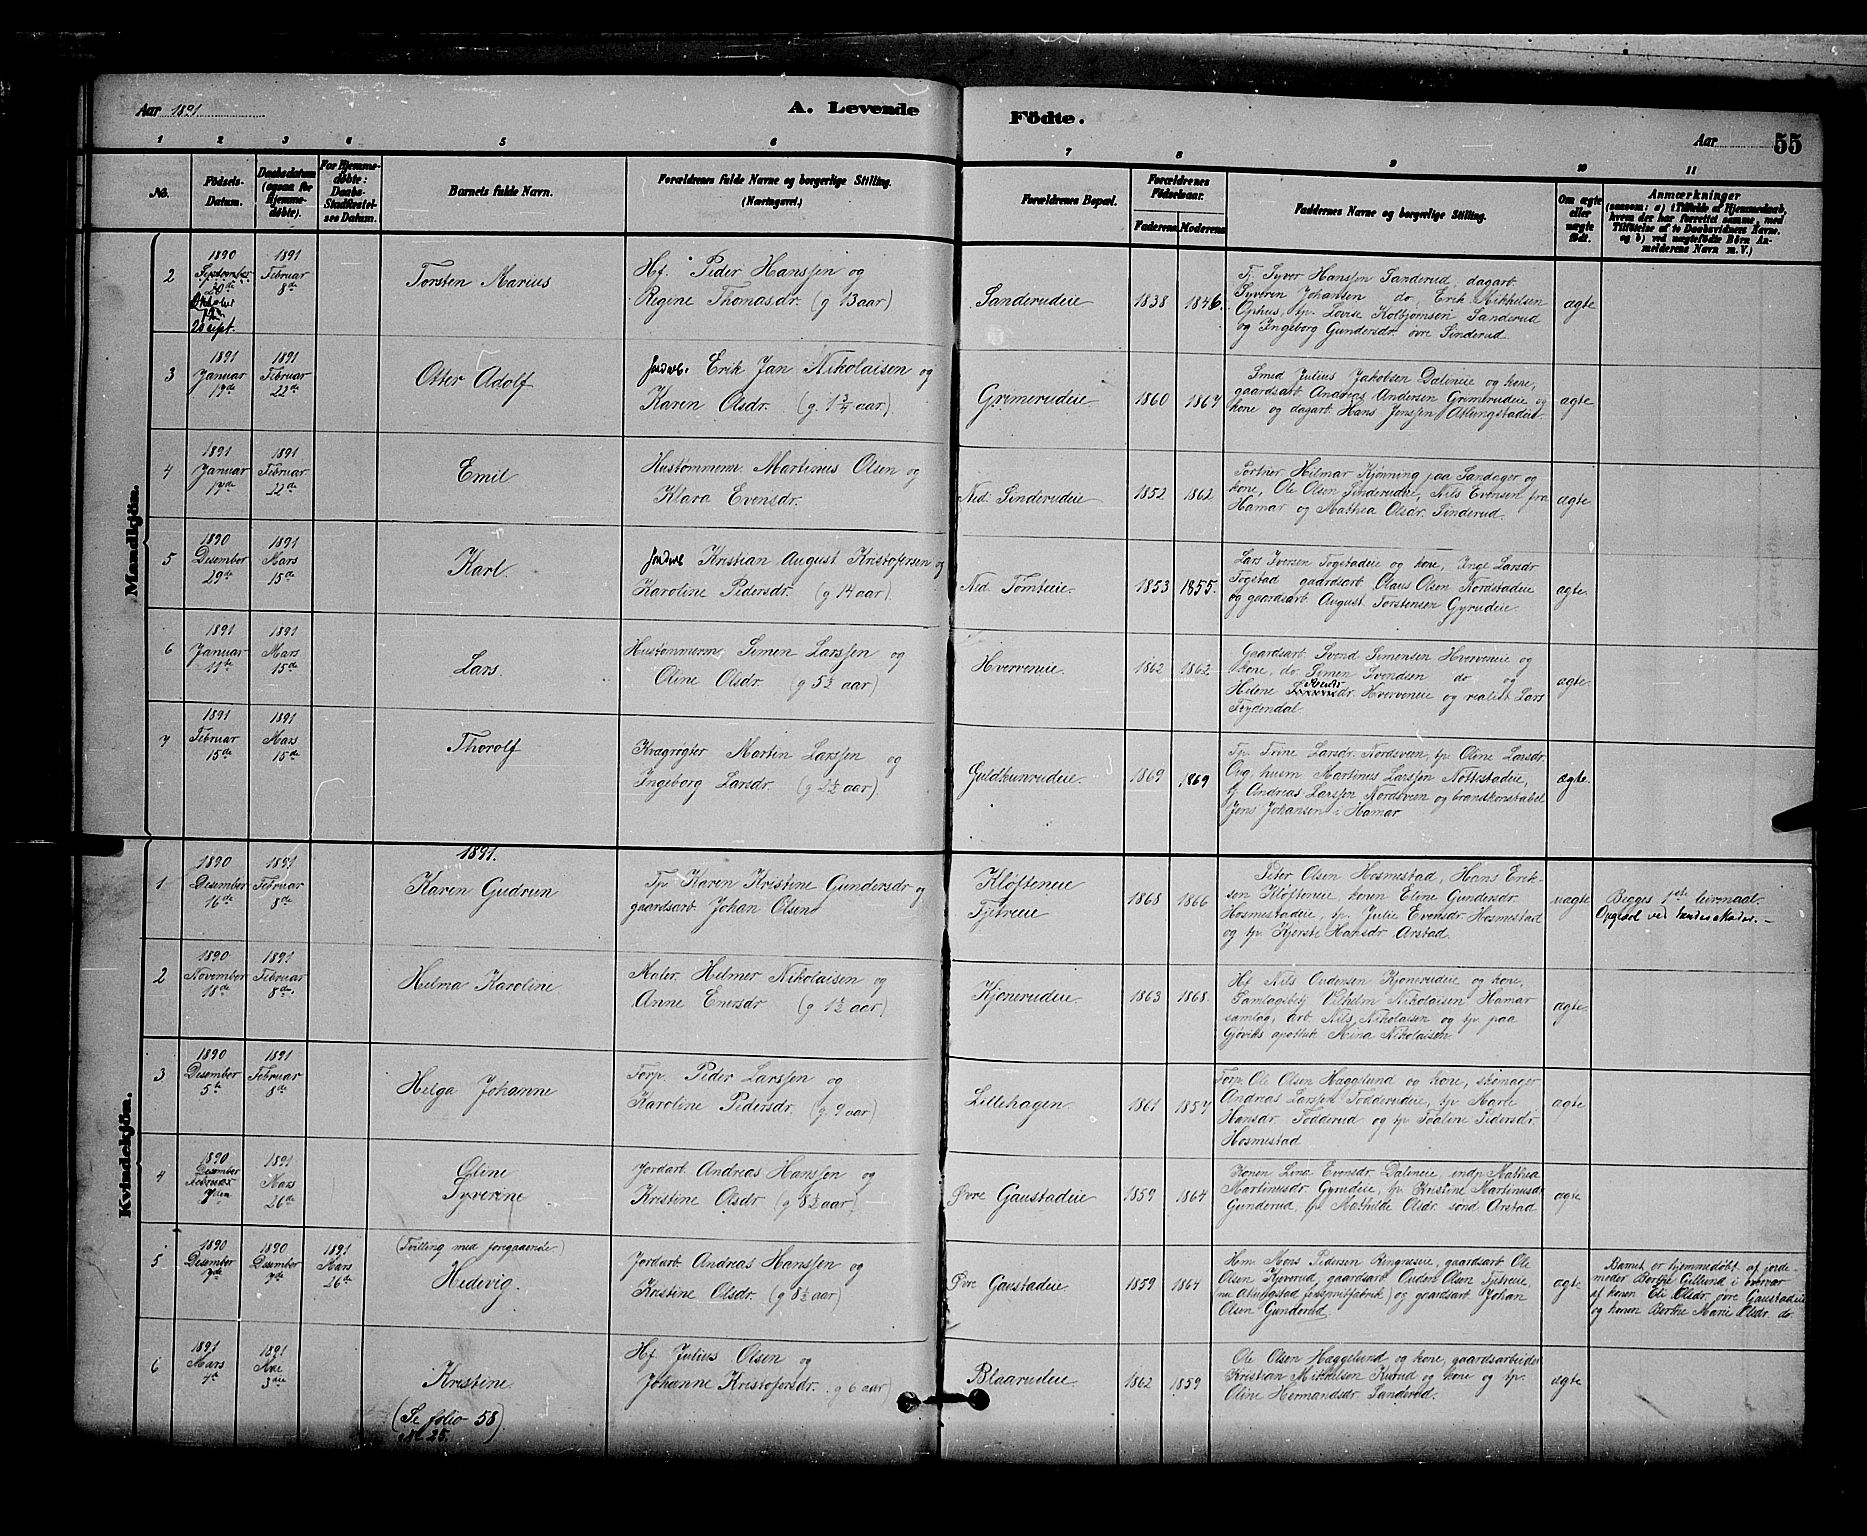 Aar 1891
A. Levende
Födte.
Aar
55
1 2 3 4 5 6 7 8 9 10 11
No.
Fødsels-
Datum.
Daabsdatum
(ogsaa for
Hjemme-
døbte).
For Hjemme-
døbte:
Daabs-
Stadfæstel-
ses Datum.
Barnets fulde Navn.
Forældrenes fulde Navne og borgerlige Stilling.
(Næringsvei.)
Forældrenes Bopæl.
Forældrenes
Fødselsaar.
Faderens
Moderens
Faddernes Navne og borgerlige Stilling.
Om ægte
eller
uægte
født.
Anmærkninger
(saasom: a) i Tilfælde af Hjemmedaab,
hvem der har forrettet samme, med
Tilføielse af to Daabsvidners Navne.
og b) ved uægtefødte Børn An-
melderens Navn m. V.)
Mandkjön.
2
1890
September
20de
Oktober
20 sept.
1891
Februar
8de
Torsten Marius
Hf. Peder Hanssen og
Regine Thomasdr. (g 13 aar)
Sanderudeie
1838
1846.
Tj. Syver Hanssen Sanderud, dagarb.
Syveren Johansen do, Erik Mikkelsen
Ophus, tp. Lovise Kolbjørnsen Sanderud
og Ingeborg Gundersdr. øvre Sinderud.
ægte
3
1891
Januar
17de
1891
Februar
22de
Otter Adolf
Jordarb. Erik Jan Nikolaisen og
Karen Olsdr. (g. 1 3/4 aar)
Grimerudeie
1860
1867
Smed Julius Jakobsen Dalineie og kone,
gaardsarb. Andreas Andersen Grimerudeie og
kone og dagarb. Hans Jenssen Atlungstadeie.
ægte
4
1891
Januar
17de
1891
Februar
22de
Emil
Hustømmerm. Martinus Olsen og
Klara Evensdr.
Ned. Sinderudeie
1852
1862
Portnør Hilmar Kjønning paa Sandager og
kone, Ole Olsen Sinderudeie, Nils Evensen fra
Hamar og Mathea Olsdr. Sinderud.
ægte
5
1890
Desember
29de
1891
Mars
15de
Karl.
Jordarb Kristian August Kristofersen og
Karoline Pedersdr. (g 14 aar)
Ned. Tomteie.
1853
1855.
Lars Iversen Togstadeie og kone, Inge Larsdr
Togstad gaardsarb. Olaus Olsen Nordstadeie
og gaardsarb. August Torstensen Gyrudeie.
ægte.
6
1891
Januar
11te
1891
Mars
15de
Lars.
Hustømmerm. Simen Larssen og
Oline Olsdr. (g 5 1/2 aar)
Hverveneie
1862
1862
Gaardsarb. Svend Simensen Hverveneie og
kone, do. Simen Svendsen do og
Helene Svendsdr. Hverveneie og realist Lars
Frydendal.
ægte.
7
1891
Februar
15de
1891
Mars
15de
Thorolf
Kvægrøgter Martin Larssen og
Ingeborg Larsdr. (g 2 1/2 aar)
Guldhunrudeie
1869
1869
Tp. Trine Larsdr. Nordsveen, tp Oline Larsdr.
Ovg, husm. Martinus Larssen Nøttestadeie,
tj. Andreas Larssen Nordsveen og brandkonstabel
Jens Johansen i Hamar.
ægte.
Kvindekjön.
1891.
1
1890
Desember
16de
1891
Februar
8de
Karen Gudrun
Tp. Karen Kristine Gundersdr og
gaardsarb. Johan Olsen
Kløfteneie
Tjetreie
1868
1866
Peter Olsen Hosmestad, Hans Erik-
sen Kløfteneie, konen Eline Gundersdr.
Hosmestadeie, tp. Julie Evensdr Hosmestad
og tp. Kjersti Hansdr Arstad.
uægte
Begges 1ste leiermaal.
2
1890
November
18de
1891
Februar
8de.
Helma Karoline
Maler Helmer Nikolaisen og
Anne Enersdr (g 1 1/2 aar)
Kjonerudeie
1863
1868.
Hf. Nils Oudensen Kjonerudeie og kone,
Samlagsbetj Vilhelm Nikolaisen Hamar
samlag, arb. Nils Nikolaisen og tp. paa
Gjøviks apothek Mina Nikolaisen.
ægte.
3
1890
Desember
5te
1891
Februar
8de
Helga Johanne
Torp. Peder Larssen og
Karoline Pedersdr. (g 9 aar)
Lillehagen
1861
1857
Torp. Ole Olsen Haggelund og kone, skomager
Andreas Larssen Todderudeie, tp Marte
Hansdr. Todderud og tp. Toaline Pedersdr.
Hosmestad
ægte
4
1890
Desember
Februar
1891
Mars
26de
Oline
Syverine
Jordarb. Andreas Hanssen og
Kristine Olsdr. (g 8 1/2 aar)
Øvre Gaustadeie
1859
1864
Konen Lina Evensdr. Dalineie, indp Mathea
Martinusdr. Gyrudeie, tp. Kristine Martinusdr
Gunderud, tp. Mathilde Olsdr. sønd Arstad
ægte
5
1890
Desember
7de
1890
Desember
7de
1891
Mars
26de
(Tvilling med foregaaende)
Hedevig.
Jordarb. Andreas Hanssen og
Kristine Olsdr. (g 8 1/2 aar)
Øvre Gaustadeie
1859
1864
Hm. Mons Pedersen Ringneseie, gaardsarb. Ole
Olsen Kjøverud, gaardsarb. Ouden Olsen Tjetreie
(nu Atlungstad fedspritfabrik) og gaardsarb. Johan
Olsen Gunderud
ægte
Barnet er hjemmedøbt af jorde-
moder Berthe Gillund i overvær
af konen Eli Olsdr. øvre Gaustadeie
og konen Berthe Marie Olsdr. do.
6
1891
Mars
4de
1891
Mai
3die
Kristine.
(Se folio 58)
No 25.
Hf. Julius Olsen og
Johanne Kristofersdr. (g 6 aar)
Blaarudeie.
1862
1859
Ole Olsen Haggelund og kone, gaardsarbeider
Kristian Mikkelsen Kurud og kone og tp.
Oline Hermandsdr. Sanderud.
ægte